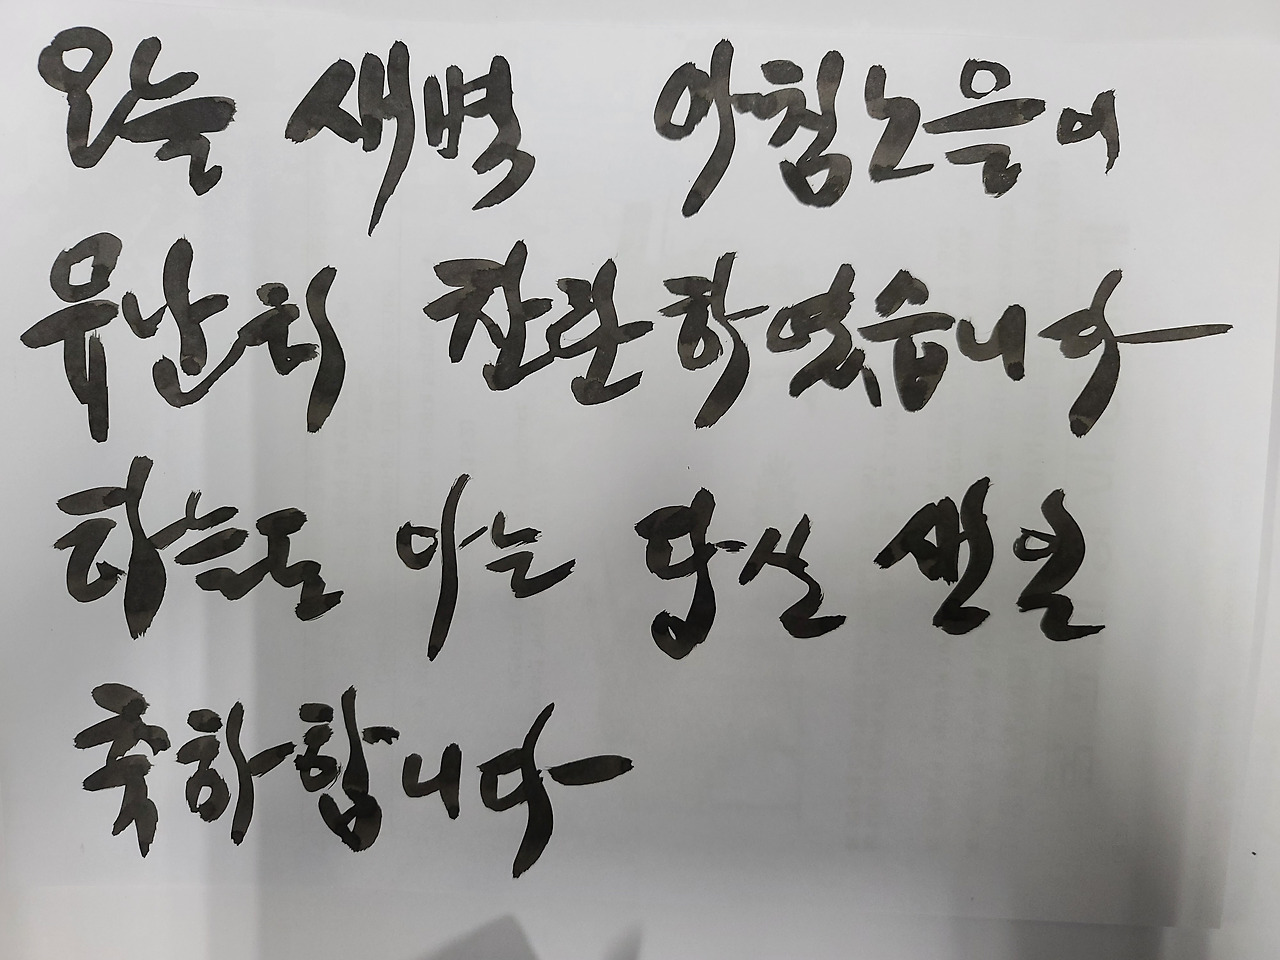 오늘 새벽 아침노을이
유난히 찬란하였습니다
하늘도 아는 당신 생일
축하합니다